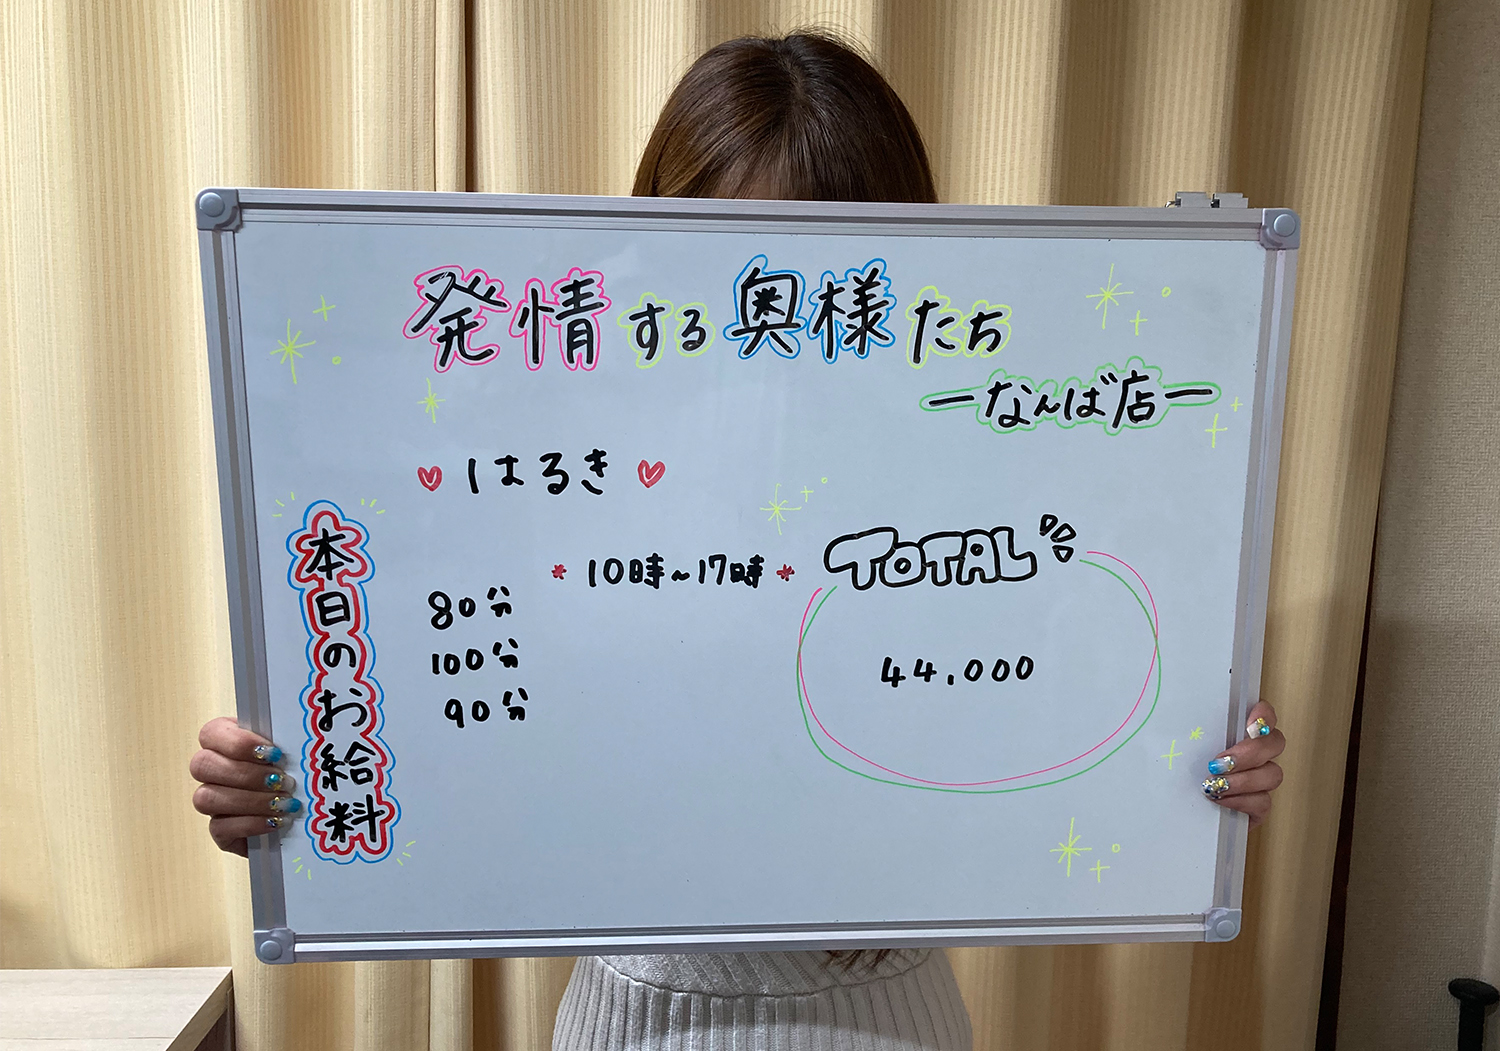 発情する奥様たち
ーなんば店ー
♥ はるき ♥
本日のお給料
* 10時~17時 *
80分
100分
90分
TOTAL
44,000